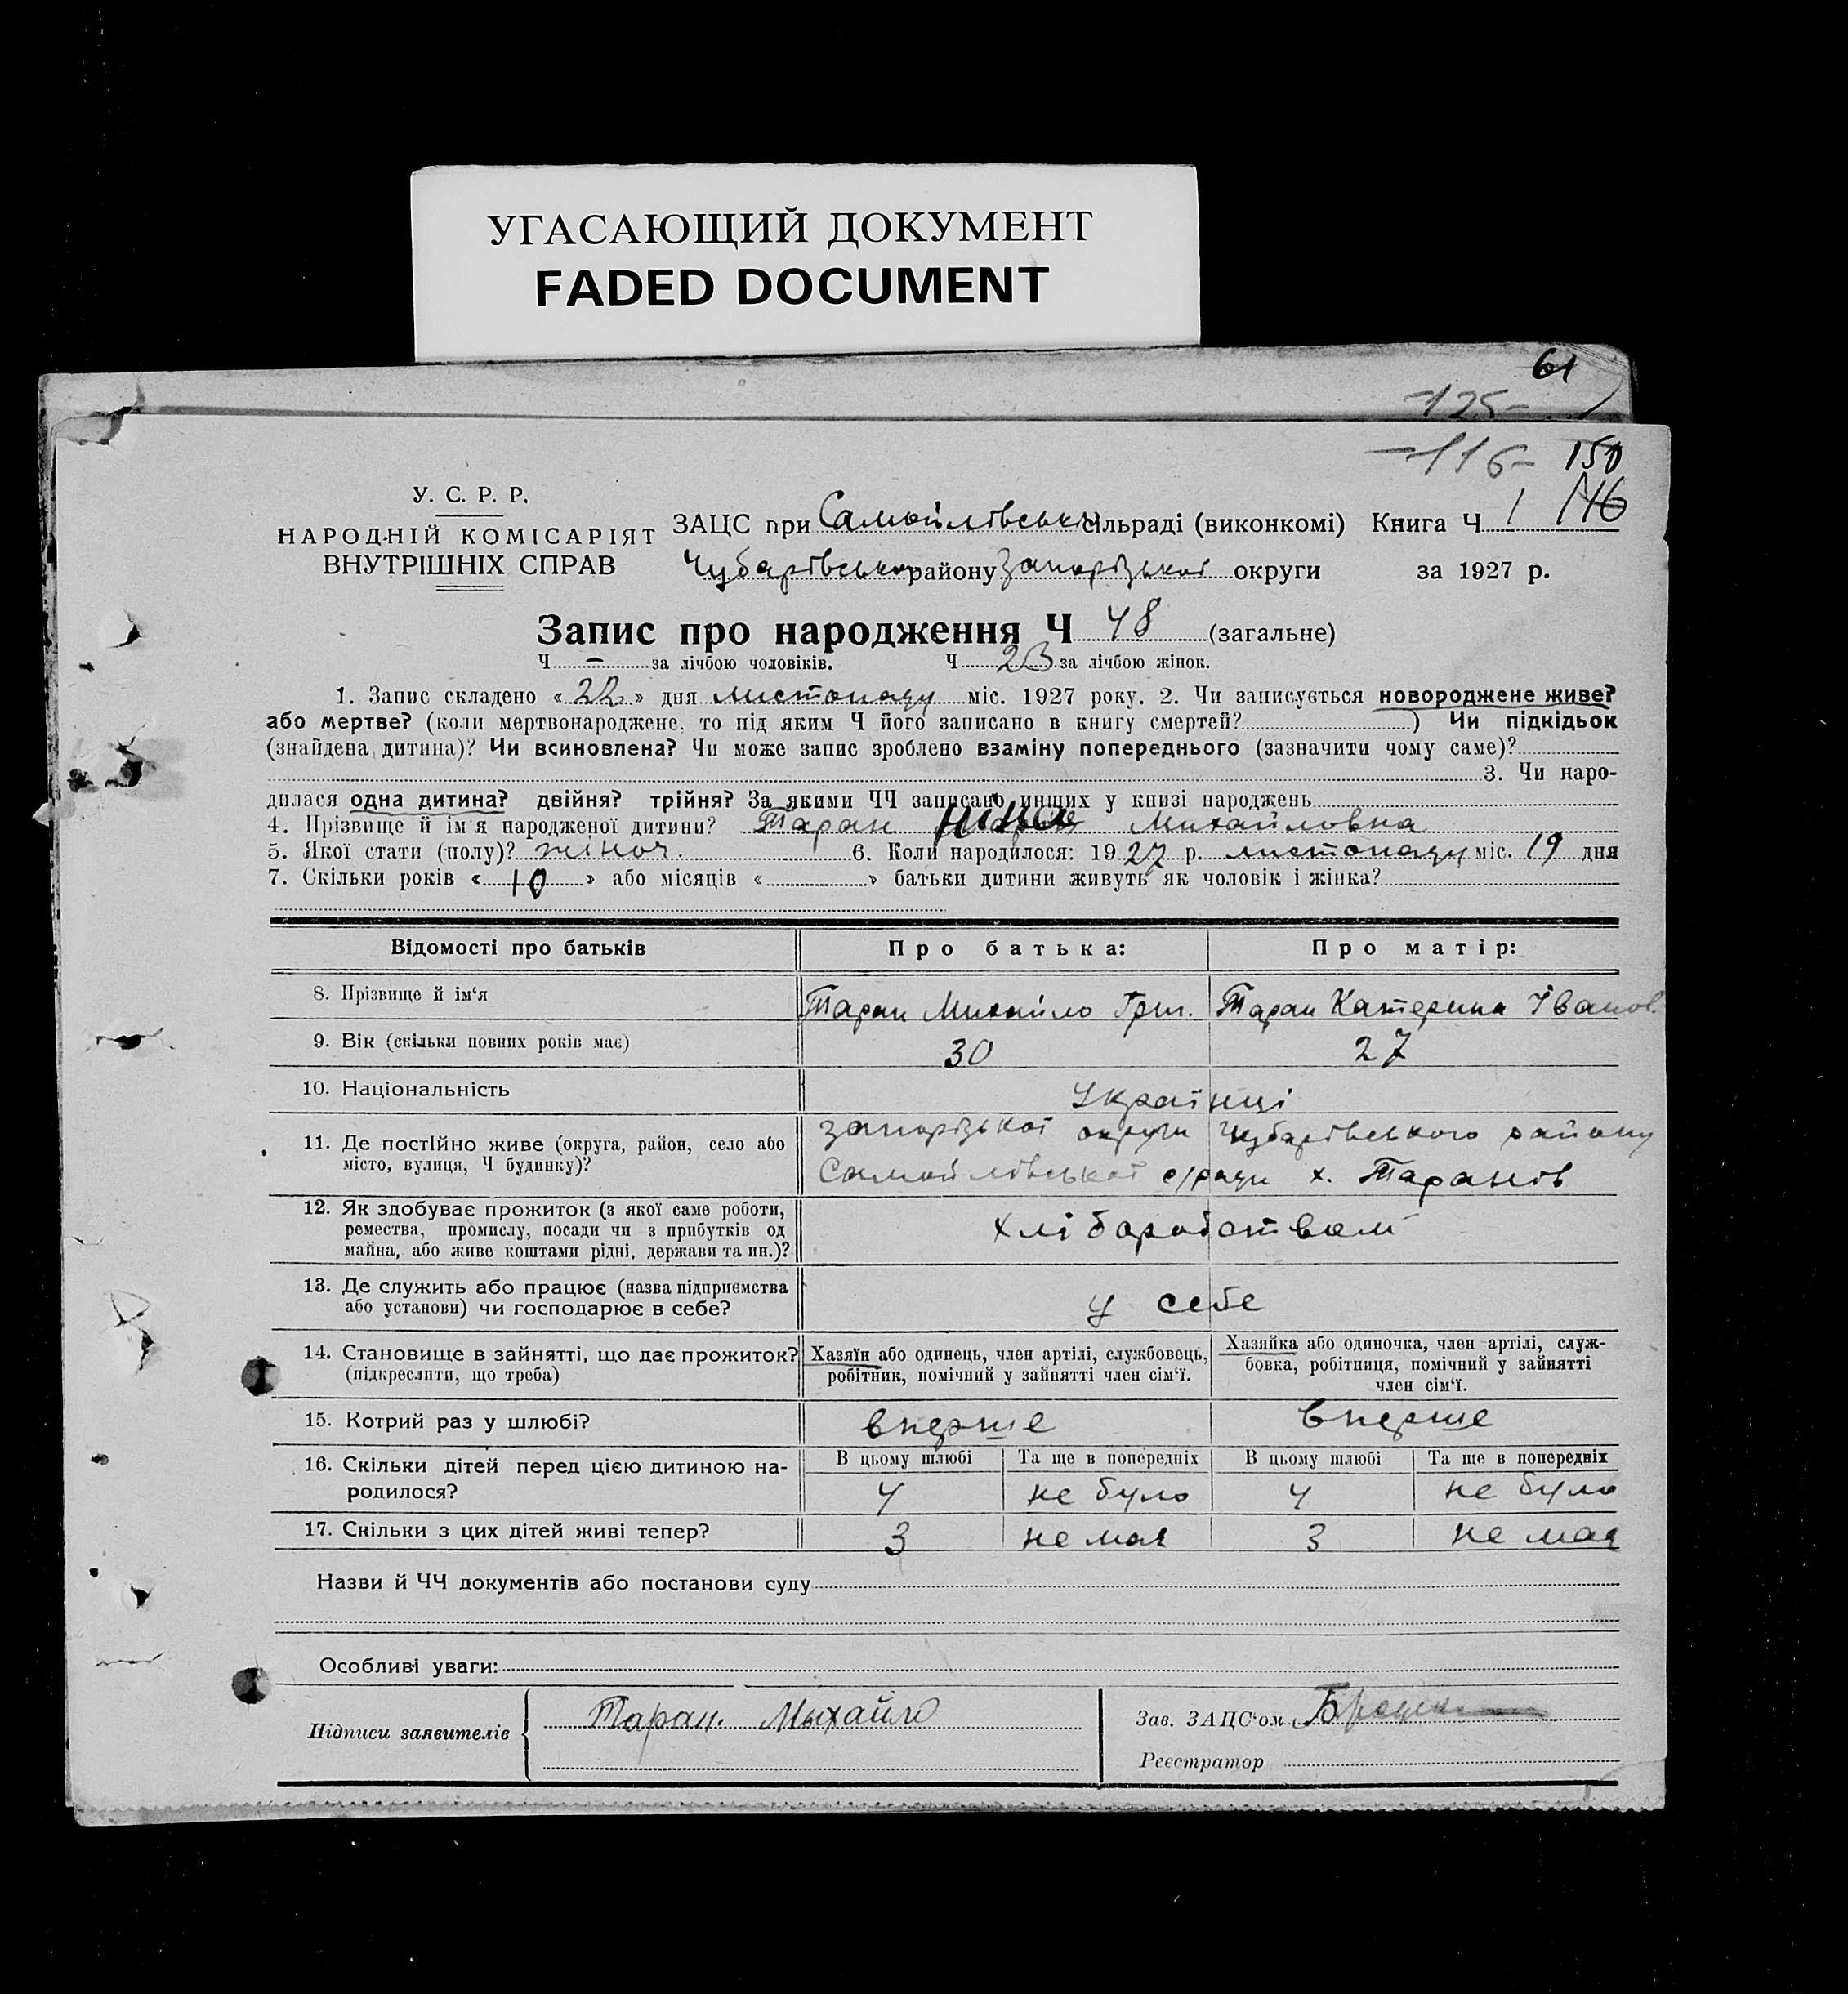 УГАСАЮЩИЙ ДОКУМЕНТ
FADED DOCUMENT
61
-125-
-116- 150
У. С. Р. Р.
НАРОДНІЙ КОМІСАРІЯТ
ВНУТРІШНІХ СПРАВ
ЗАЦС при Самойлівській сільраді (виконкомі) Книга Ч 1 146
Чубарівського району Запорізької округи за 1927 р.
Запис про народження Ч 48 (загальне)
Ч - за лічбою чоловіків. Ч 23 за лічбою жінок.
1. Запис складено «22» дня листопаду міс. 1927 року. 2. Чи записується новороджене живе?
або мертве? (коли мертвонароджене, то під яким Ч його записано в книгу смертей? ) Чи підкідьок
(знайдена дитина)? Чи всиновлена? Чи може запис зроблено взаміну попереднього (зазначити чому саме)?
3. Чи наро-
дилася одна дитина? двійня? трійня? За якими ЧЧ записано инших у книзі народжень
4. Прізвище й ім'я народженої дитини? Таран Ніна Михайловна
5. Якої стати (полу)? жіноч. 6. Коли народилося: 1927 р. листопаду міс. 19 дня
7. Скільки років «10» або місяців « » батьки дитини живуть як чоловік і жінка?
Відомості про батьків Про батька: Про матір:
8. Прізвище й ім'я Таран Михайло Григ. Таран Катерина Іванов.
9. Вік (скільки повних років має) 30 27
10. Національність Українці
11. Де постійно живе (округа, район, село або Запорізької округи Чубарівського району
місто, вулиця, Ч будинку)? Самойлівської с/ради х. Таранів
12. Як здобуває прожиток (з якої саме роботи,
ремества, промислу, посади чи з прибутків од хліборобством
майна, або живе коштами рідні, держави та ин.)?
13. Де служить або працює (назва підприємства
або установи) чи господарює в себе? у себе
14. Становище в зайнятті, що дає прожиток? Хазяїн або одинець, член артілі, службовець, Хазяйка або одиночка, член артілі, служ-
(підкреслити, що треба) робітник, помічний у зайнятті член сім'ї. бовка, робітниця, помічний у зайнятті
член сім'ї.
15. Котрий раз у шлюбі? вперше вперше
16. Скільки дітей перед цією дитиною на- В цьому шлюбі Та ще в попередніх В цьому шлюбі Та ще в попередніх
родилося? 4 не було 4 не було
17. Скільки з цих дітей живі тепер? 3 не мая 3 не мая
Назви й ЧЧ документів або постанови суду
Особливі уваги:
Підписи заявителів Таран. Мыхайло Зав. ЗАЦС'ом
Реєстратор